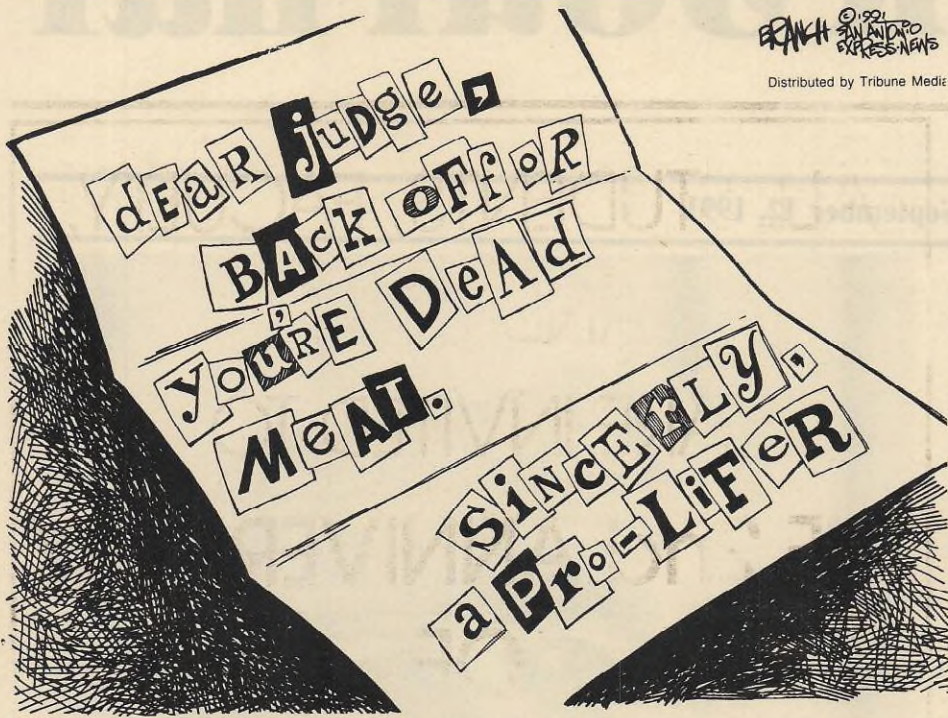 BRANCH © 1991
SAN ANTONIO
EXPRESS-NEWS
Distributed by Tribune Media
dEaR juDge,
BAcK oFf oR
you'RE DeAd
MeAT.
SiNcErLY,
a PrO-LiFeR
September 12, 1991